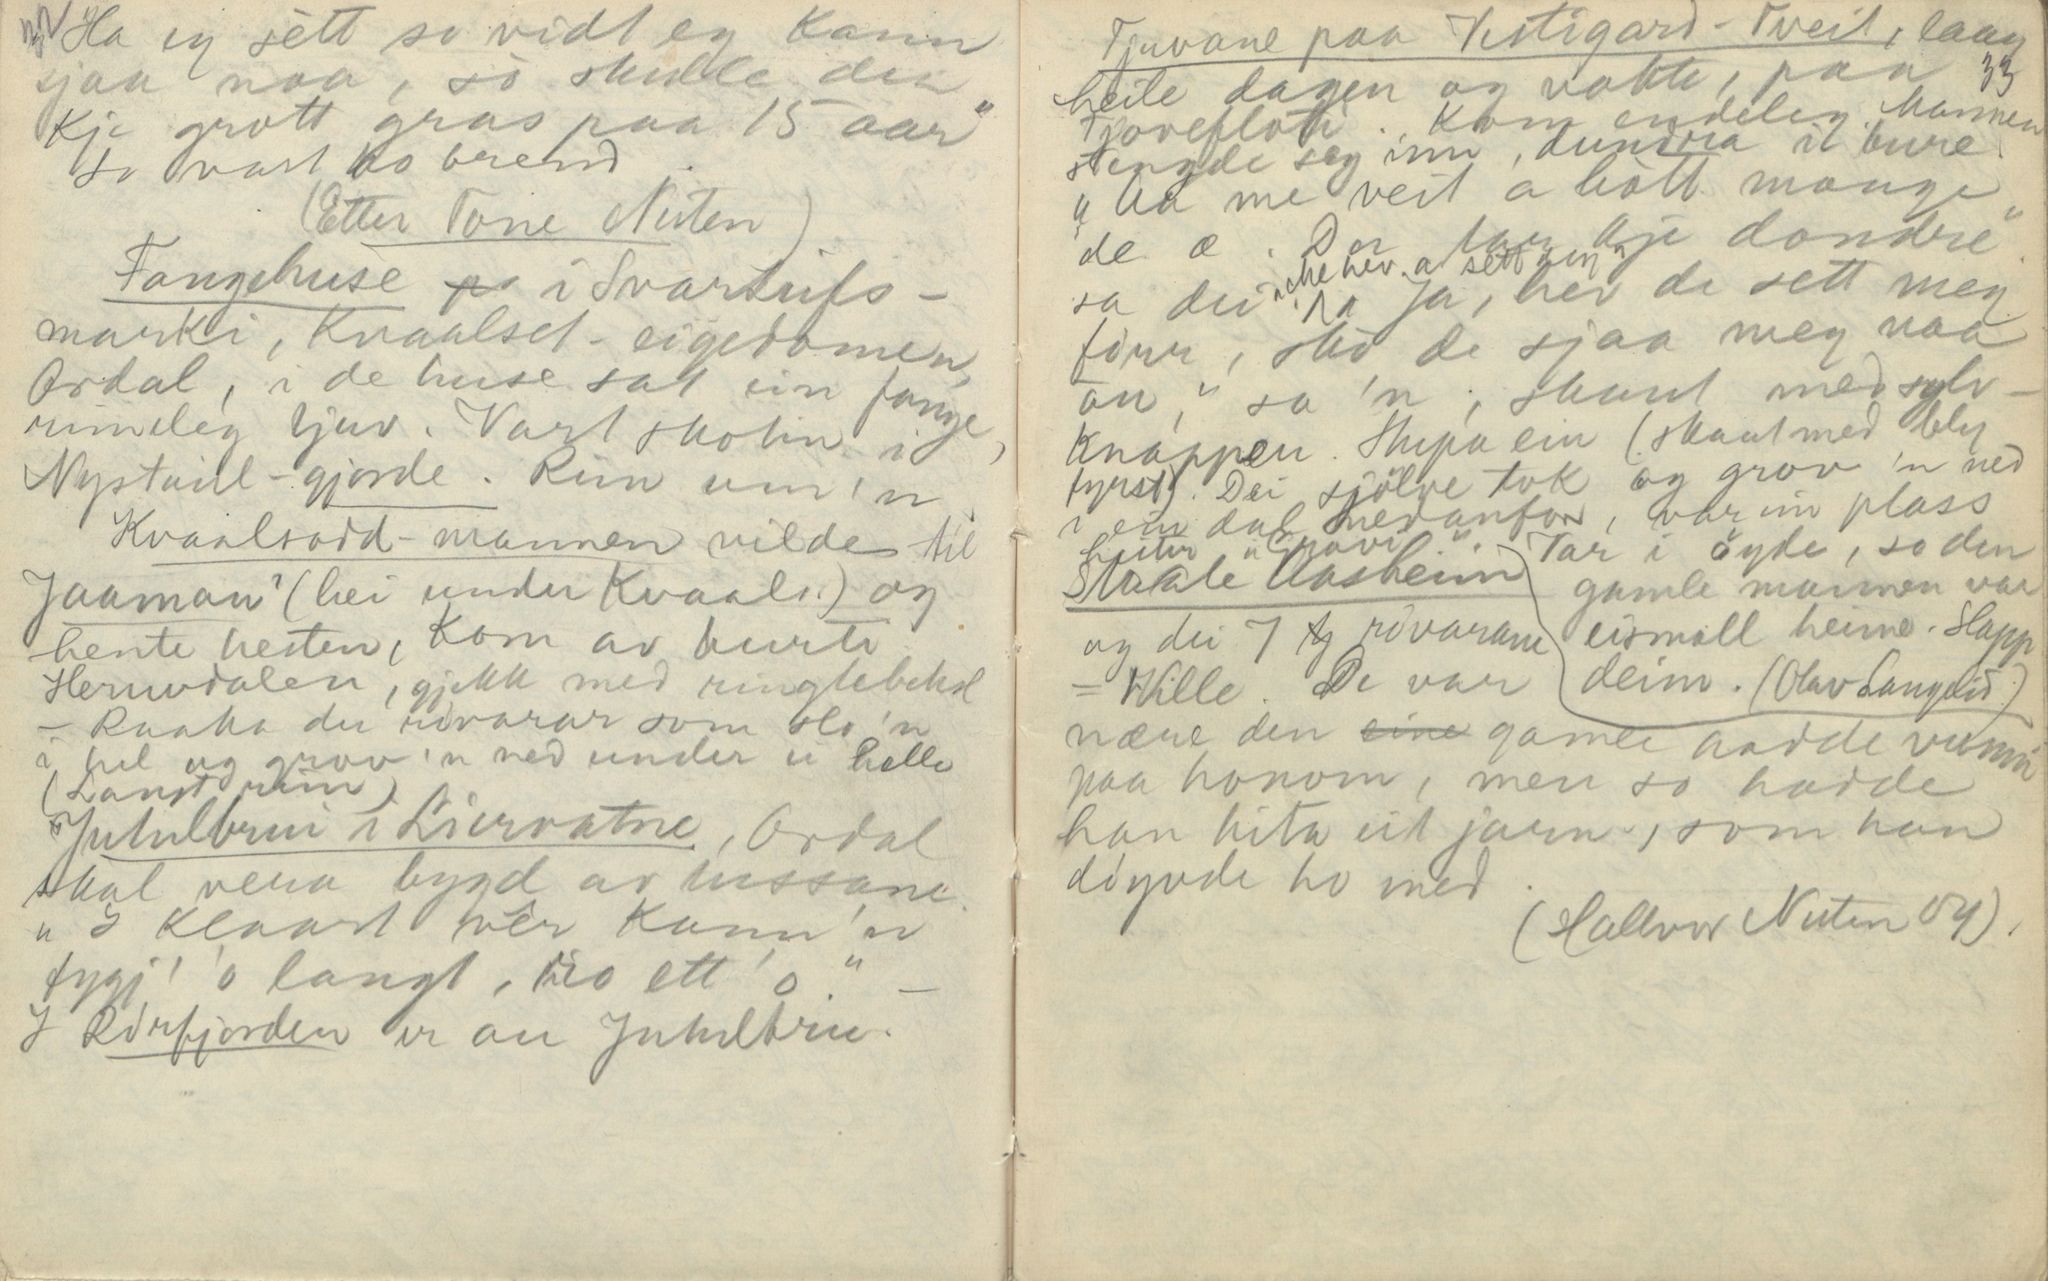 "Ha eg sètt so vidt eg kann
sjaa naa, sò skulle dei
kje grott gras paa 15 aar"
so vart ho brend.
(Etter Tone Nuten)
Fangehuse i Svartufs-
marki, Kvaalset-eigedomen,
Ordal, i de huse sat ein fange,
rimeleg tjuv. Vart skotin i
Nystaul-gjorde. Rim um 'n
Kvaalsodd-mannen vilde til
Jaaman' (hei under Kvaals.) og
hente hesten, kom av burti
Heruvdalen, gjekk med ringlebeksl
- Raaka dei rövarar som slo 'n
i hel og grov 'n ned under ei helle
(Langt rim)
Jutulbrui i Liervatne, Ordal
skal vera bygd av tussane.
"I klaart vêr kann 'n
fygj' 'o langt, sjo ett 'o." -
I Rörfjorden er au Jutulbru.
33
Tjuvane paa Vistigard-Tveit, laag
heile dagen og vakta, paa
Tjoveflòti. Kom endeleg. Mannen
stengde seg inn, dundra i bure.
"Aa me veit a bòtt mange
de æ. Der tar kje dondre"
sa dei "Me hev a sètt deg"
"Ja, hev de sett meg
förr, sko de sjaa meg naa
au," sa 'n, skaut med sylv-
knappen. Stupa ein (skaut med bly
fyrst). Dei sjölve tok og grov 'n ned
i ein dal nedanfor, var in plass
heiter "Grovi". Tar i öyde, so den
gamle mannen var
eismall heime. Slapp
deim. (Olav Langlid)
Staale Aasheim
og dei 7 rövarane
= Wille. De var
nære den eine gamle hadde vunni
paa honom, men so hadde
han hita eit jarn, som han
döyvde ho med.
(Hallvor Nuten 04).